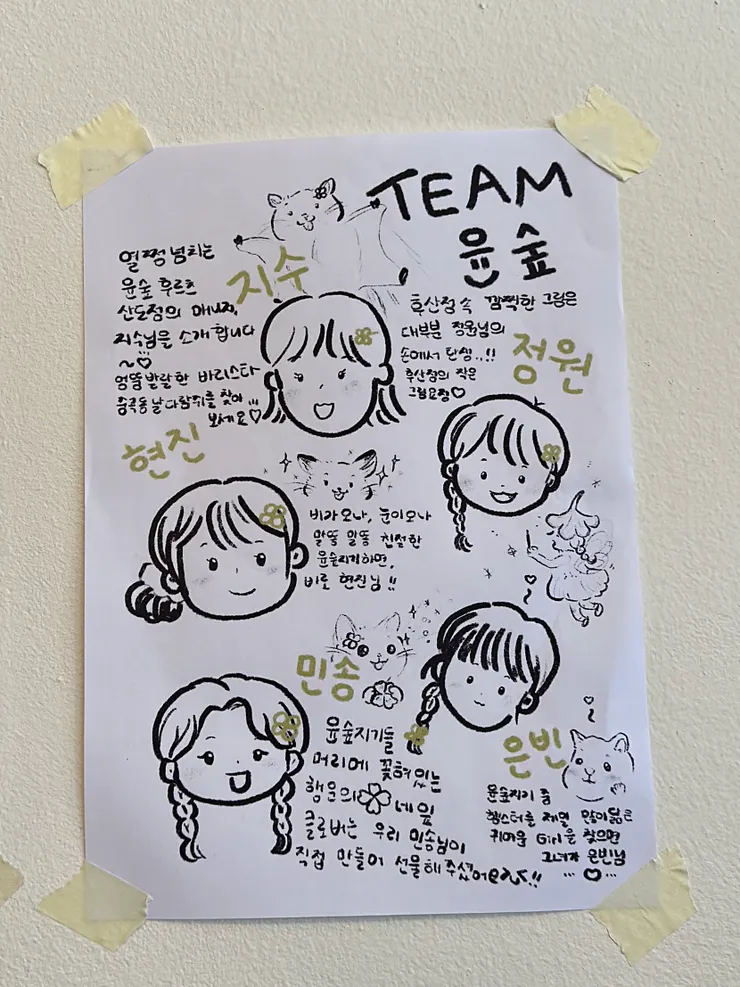 TEAM
윤숲
지수
열쩡 넘치는
윤숲 후르츠
산도점의 매니저,
지수님을 소개합니다
~♡
엉뚱발랄한 바리스타
중곡동 날다람쥐를 찾아
보세요♡
정원
후산점 속 깜찍한 그림은
대부분 정원님의
손에서 탄생..!!
후산점의 작은
그림요정♡
현진
비가 오나, 눈이 오나
말똥 말똥 친절한
윤숲지기하면,
바로 현진님!!
민송
윤숲지기들
머리에 꽃혀있는
행운의 네잎
클로버는 우리 민송님이
직접 만들어 선물해주셨어요!!
은빈
윤숲지기 중
햄스터를 제일 많이 닮은
귀여운 Girl을 찾으면
그녀가 은빈님
...♡...